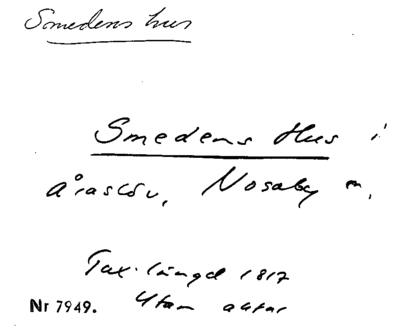 Smedens hus
Smedens Hus i
Åraslöv, Nosaby sn,
Tax. längd 1817
Nr 7949. Utan aktar